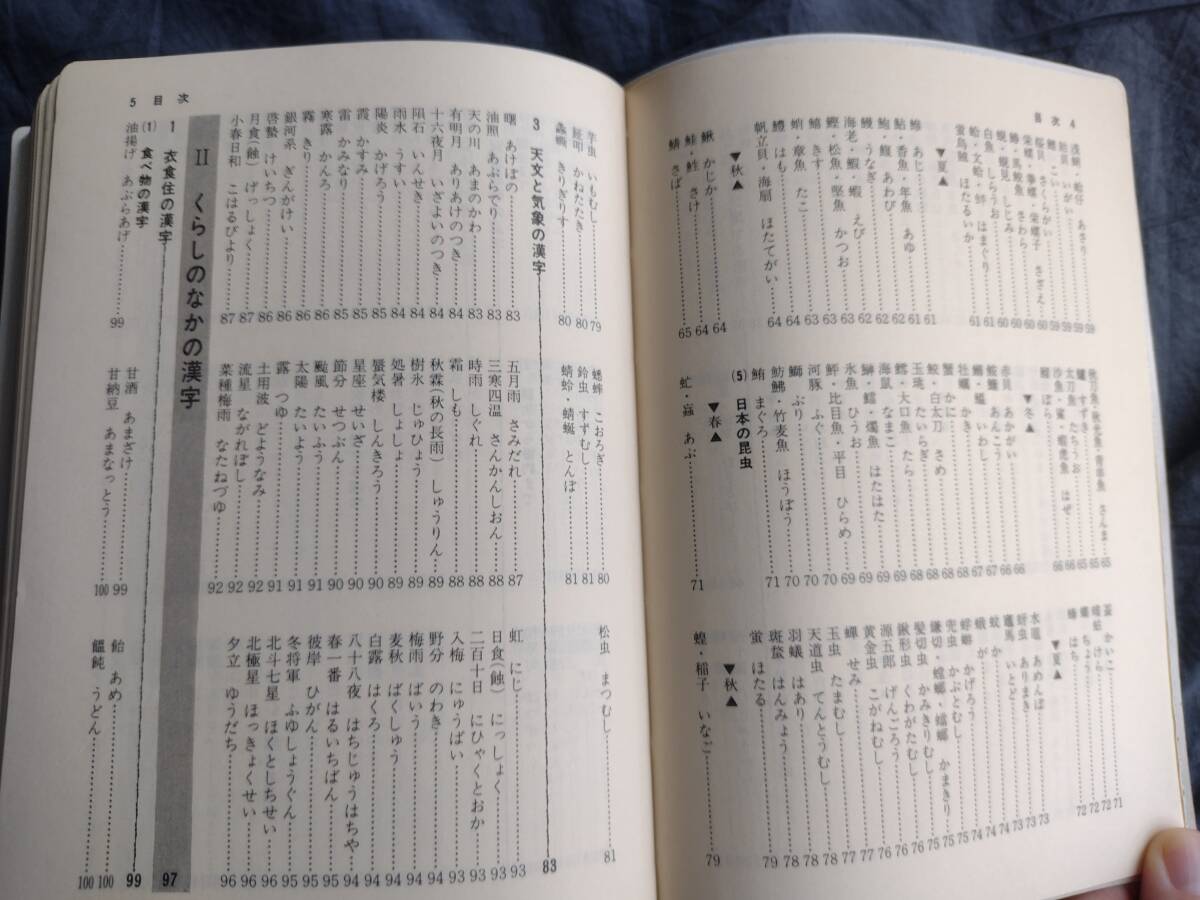 目次 4
浅蜊・蛤仔 あさり 59
貽貝 いがい 59
鯉 こい 59
桜貝 さくらがい 59
栄螺・拳螺・栄螺子 さざえ 60
鰆・馬鮫魚 さわら 60
しじみ 60
白魚 しらうお 60
蛤・文蛤・蚌 はまぐり 60
蛍烏賊 ほたるいか 61
▼夏▲
鯵 あじ 61
鮎・香魚・年魚 あゆ 61
鮑・鰒 あわび 62
鰻 うなぎ 62
海老・鰕・蝦 えび 62
鰹・松魚・堅魚 かつお 63
鱚 きす 63
蛸・章魚 たこ 63
鱧 はも 64
帆立貝・海扇 ほたてがい 64
▼秋▲
鰍 かじか 64
鮭・鮏 さけ 64
鯖 さば 65
秋刀魚・秋光魚・青串魚 さんま 65
鱸 すずき 65
太刀魚 たちうお 66
沙魚・鯊・蝦虎魚 はぜ 66
鯔 ぼら 66
▼冬▲
赤貝 あかがい 66
鮟鱇 あんこう 66
鰯・鰮 いわし 67
牡蠣 かき 67
蟹 かに 68
鮫・白太刀 さめ 68
玉珧 たいらぎ 68
鱈・大口魚 たら 68
海鼠 なまこ 69
鰰・鱩・燭魚 はたはた 69
氷魚 ひうお 69
鮃・比目魚・平目 ひらめ 69
河豚 ふぐ 70
鰤 ぶり 70
魴鮄・竹麦魚 ほうぼう 70
鮪 まぐろ 71
(5) 日本の昆虫
▼春▲
虻・蝱 あぶ 71
蚕 かいこ 71
螻蛄 けら 72
蝶 ちょう 72
蜂 はち 72
▼夏▲
水黽 あめんぼ 73
蚜虫 ありまき 73
竈馬 いとど 73
蚊 か 74
蛾 が 74
蜉蝣 かげろう 74
兜虫 かぶとむし 75
鎌切・螳螂・蟷螂 かまきり 75
髪切虫 かみきりむし 75
鍬形虫 くわがたむし 76
源五郎 げんごろう 76
黄金虫 こがねむし 76
蟬 せみ 77
玉虫 たまむし 77
天道虫 てんとうむし 78
羽蟻 はあり 78
斑蝥 はんみょう 78
蛍 ほたる 79
▼秋▲
蝗・稲子 いなご 79
5 目次
芋虫 いもむし 79
鉦叩 かねたたき 80
螽蟖 きりぎりす 80
蟋蟀 こおろぎ 80
鈴虫 すずむし 81
蜻蛉・蜻蜒 とんぼ 81
松虫 まつむし 81
3 天文と気象の漢字 83
曙 あけぼの 83
油照 あぶらでり 83
天の川 あまのかわ 83
有明月 ありあけのつき 84
十六夜月 いざよいのつき 84
隕石 いんせき 84
雨水 うすい 84
陽炎 かげろう 85
霞 かすみ 85
雷 かみなり 85
寒露 かんろ 86
霧 きり 86
銀河系 ぎんがけい 86
啓蟄 けいちつ 86
月食(蝕) げっしょく 87
小春日和 こはるびより 87
五月雨 さみだれ 87
三寒四温 さんかんしおん 88
時雨 しぐれ 88
霜 しも 88
秋霖(秋の長雨) しゅうりん 89
樹氷 じゅひょう 89
処暑 しょしょ 89
蜃気楼 しんきろう 90
星座 せいざ 90
節分 せつぶん 90
颱風 たいふう 91
太陽 たいよう 91
露 つゆ 91
土用波 どようなみ 91
流星 ながれぼし 92
菜種梅雨 なたねづゆ 92
虹 にじ 93
日食(蝕) にっしょく 93
二百十日 にひゃくとおか 93
入梅 にゅうばい 93
野分 のわき 94
梅雨 ばいう 94
麦秋 ばくしゅう 94
白露 はくろ 94
八十八夜 はちじゅうはちや 94
春一番 はるいちばん 95
彼岸 ひがん 95
冬将軍 ふゆしょうぐん 95
北斗七星 ほくとしちせい 96
北極星 ほっきょくせい 96
夕立 ゆうだち 96
II くらしのなかの漢字 97
1 衣食住の漢字
(1) 食べ物の漢字 99
油揚げ あぶらあげ 99
甘酒 あまざけ 99
甘納豆 あまなっとう 100
飴 あめ 100
饂飩 うどん 100